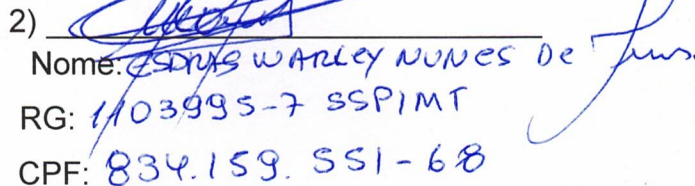 2)
Nome: ESDRAS WARLEY NUNES De Jesus.
RG: 1103995-7 SSP/MT
CPF: 834.159.551-68